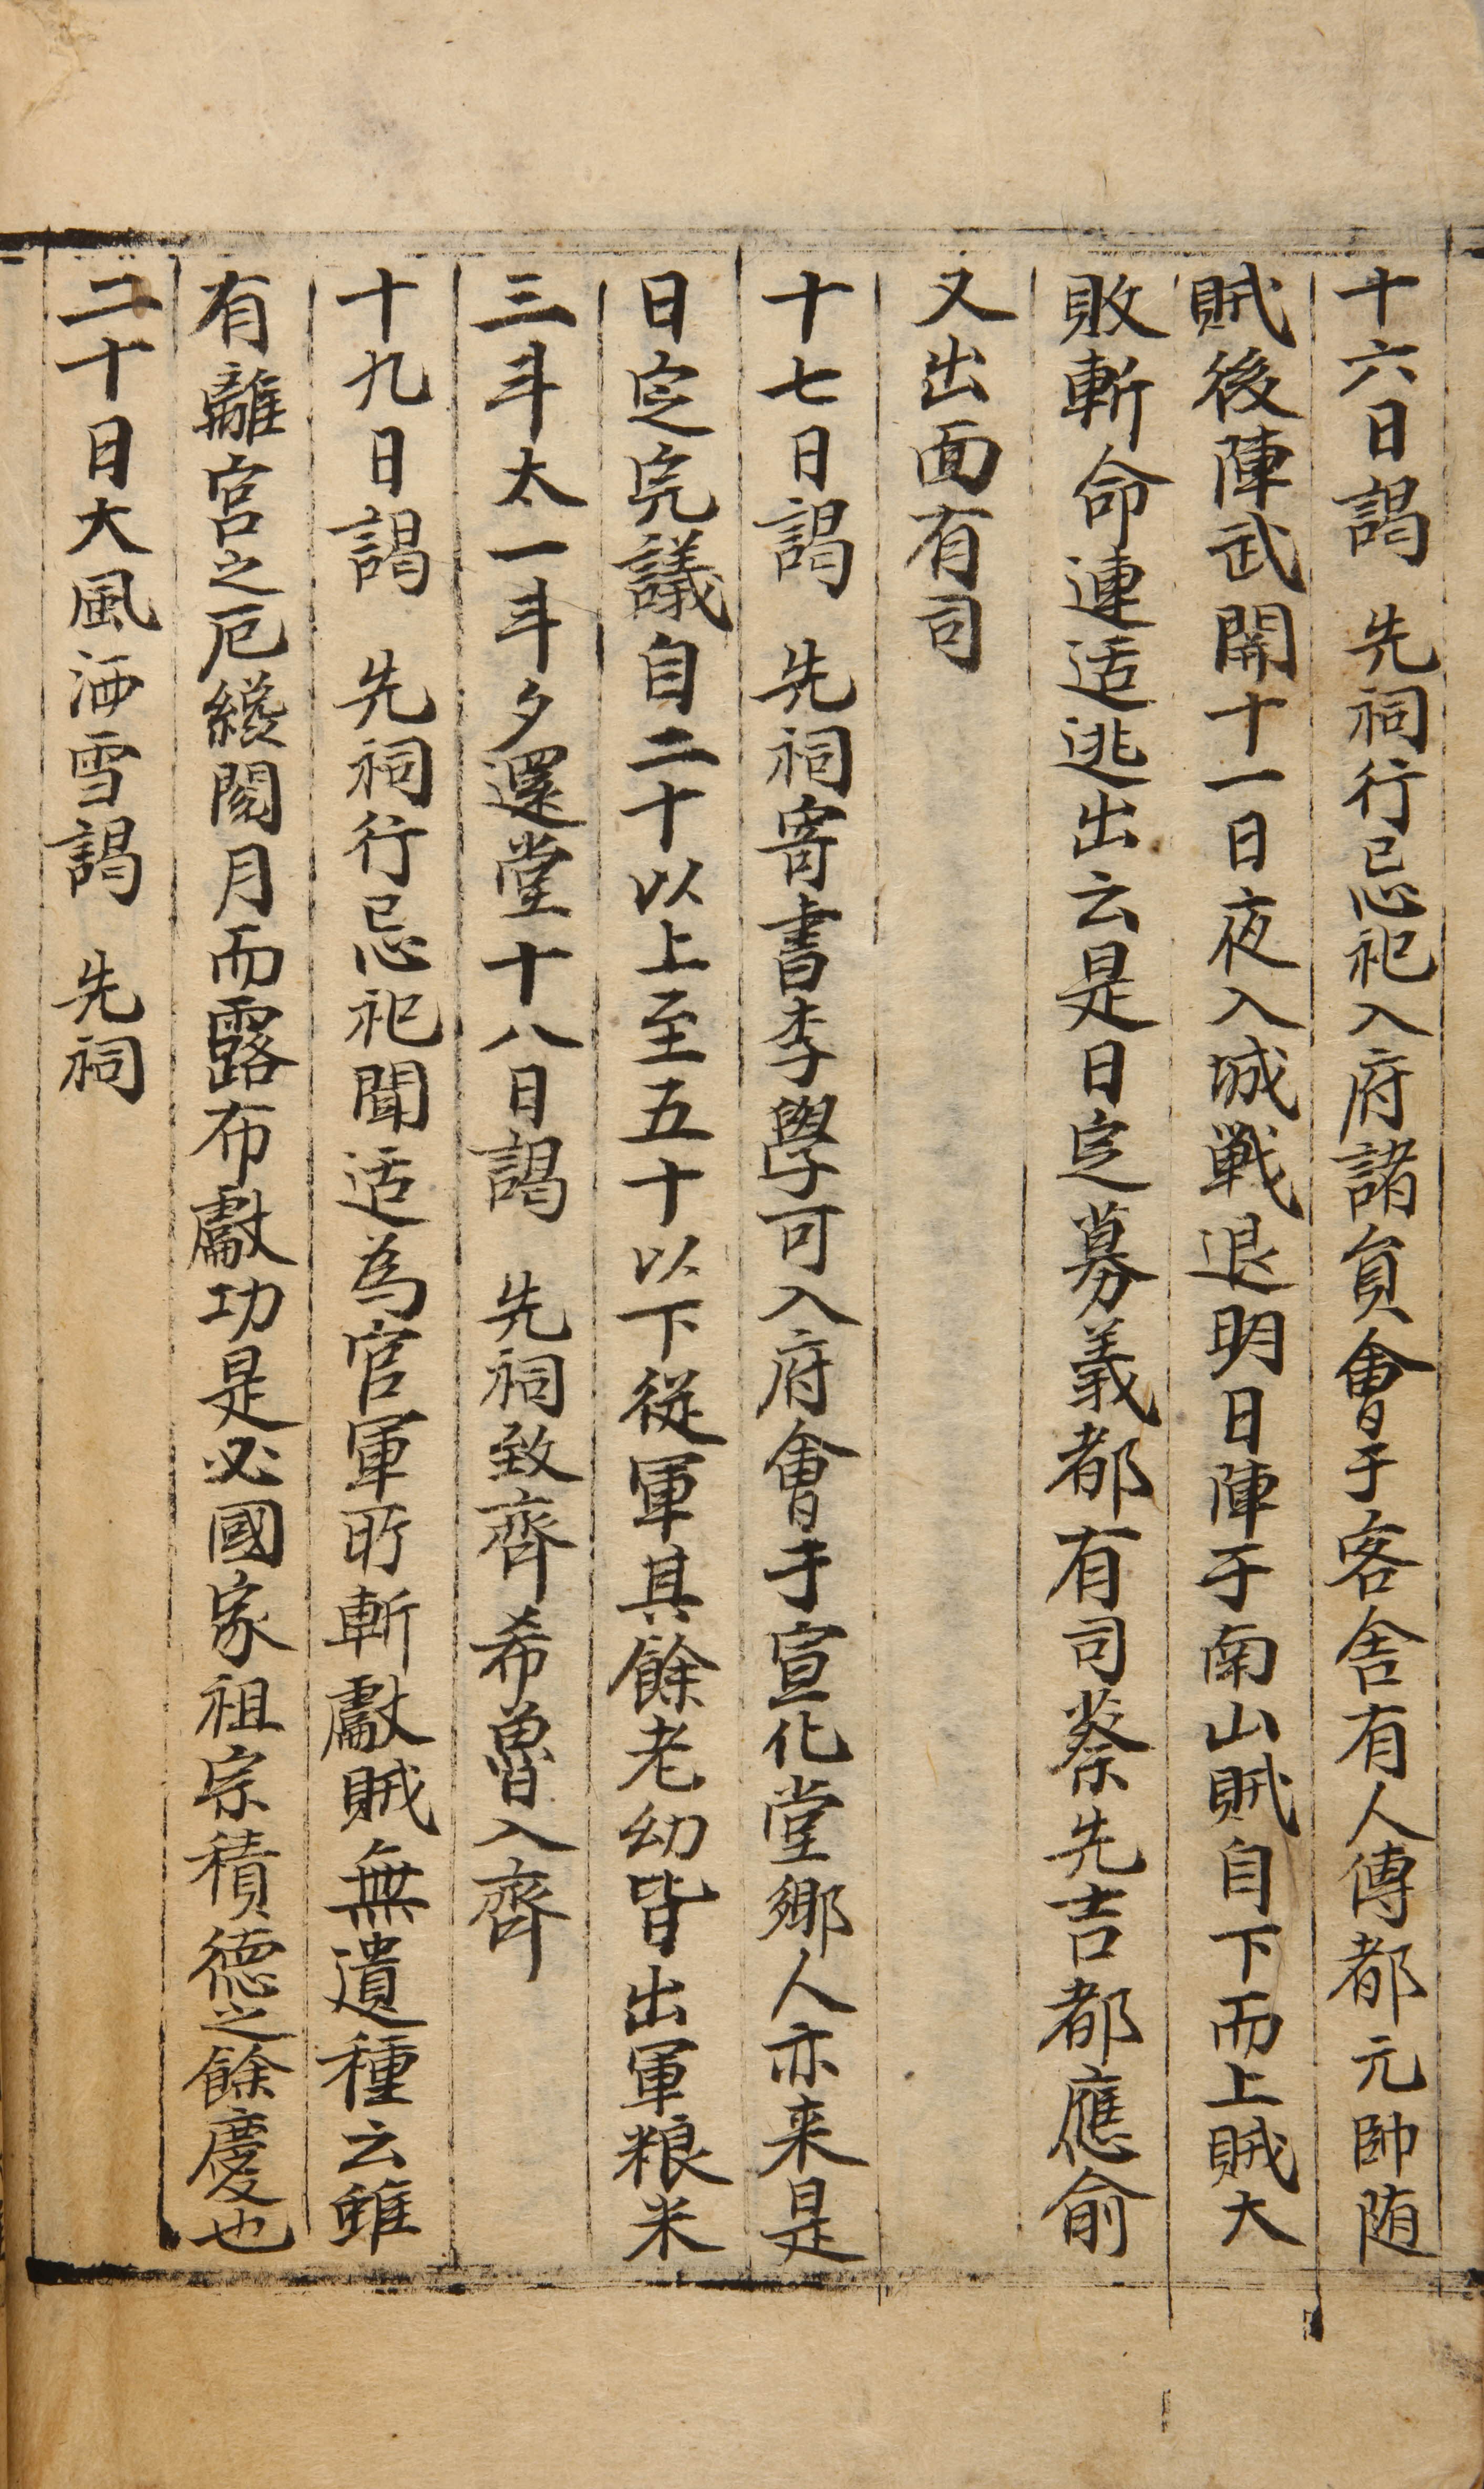 十六日謁 先祠行忌祀入府諸員會于客舍有人傳都元帥随
賊後陣武開十一日夜入城戰退明日陣于南山賊自下而上賊大
敗斬命連适逃出云是日定募義都有司蔡先吉都應俞
又出面有司
十七日謁 先祠寄書李學可入府會于宣化堂鄉人亦来是
日定完議自二十以上至五十以下從軍其餘老幼皆出軍粮米
三斗太一斗夕還堂十八日謁 先祠致齊希魯入齊
十九日謁 先祠行忌祀聞适為官軍所斬獻賊無遺種云雖
有離宮之厄纔閱月而露布獻功是必國家祖宗積德之餘慶也
二十日大風洒雪謁 先祠